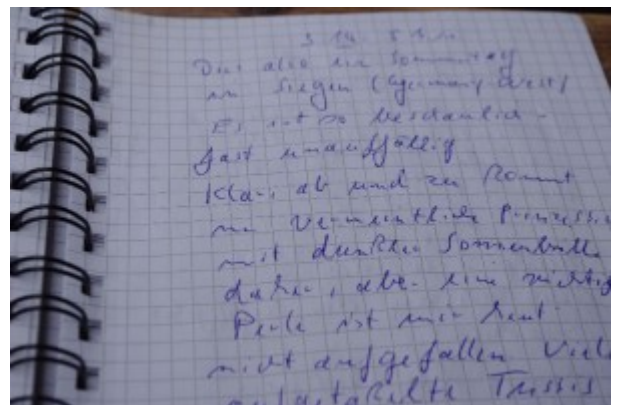 Dies also ein Sommertag
in Siegen (Germany West)
Es ist so beschaulich -
fast unauffällig.
Klar, ab und zu kommt
ne vermeintliche Prinzessin
mit dunkler Sonnenbrille
daher, aber eine richtig
Perle ist mir heut
nicht aufgefallen Viel
aufgetakelte Tussis